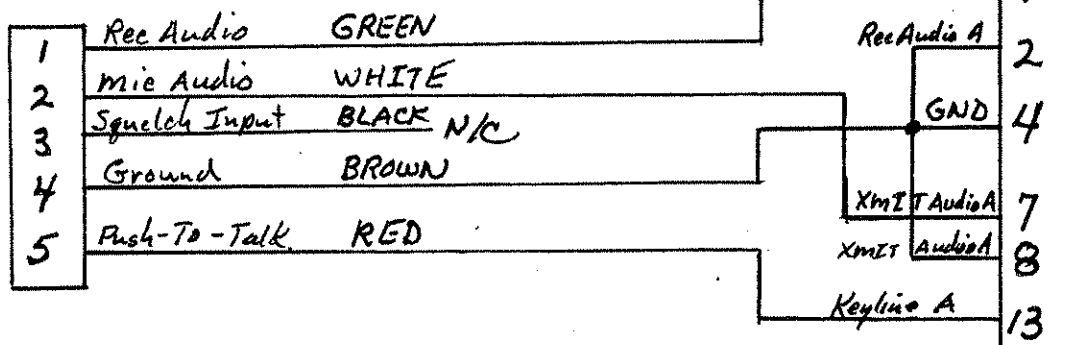 1 Rec Audio GREEN
2 Mic Audio WHITE
3 Squelch Input BLACK N/C
4 Ground BROWN
5 Push-To-Talk RED
Rec Audio A 2
GND 4
XmIT Audio A 7
XmIT Audio A 8
Keyline A 13